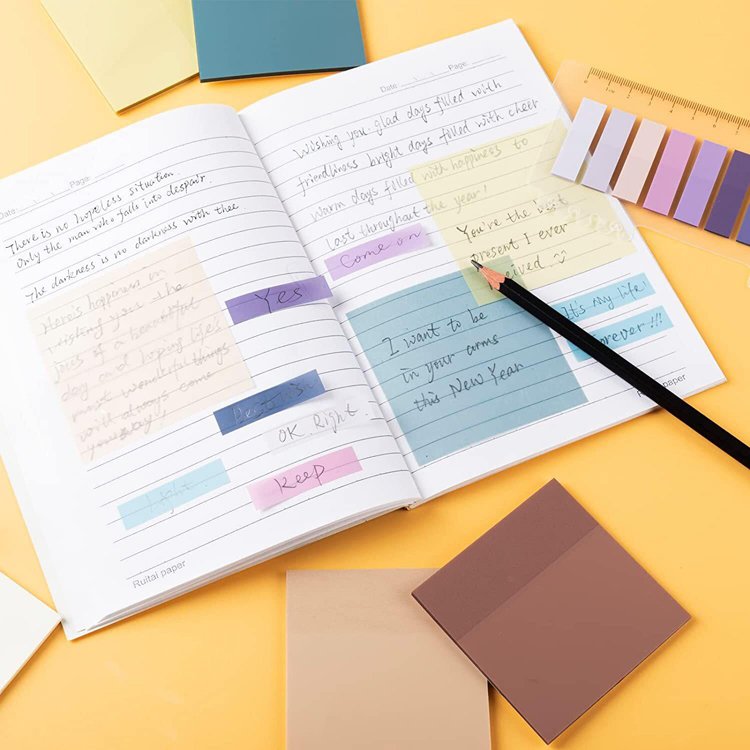 Date
Page
There is no hopeless situation.
Only the man who fails into despair.
The darkness is no darkness with thee
Here's happiness in
wishing you the
joies of a beautiful
day and hoping life's
most wonderful things
will always come
your way!
Yes
OK. Right.
Light
Keep
Ruitai paper
Date
Page
Wishing you glad days filled with
friendliness bright days filled with cheer
warm days filled with happiness to
last throughout the year!
Come on
You're the best
present I ever
received.
I want to be
in your arms
this New Year
It's my life!
Forever!!!
paper